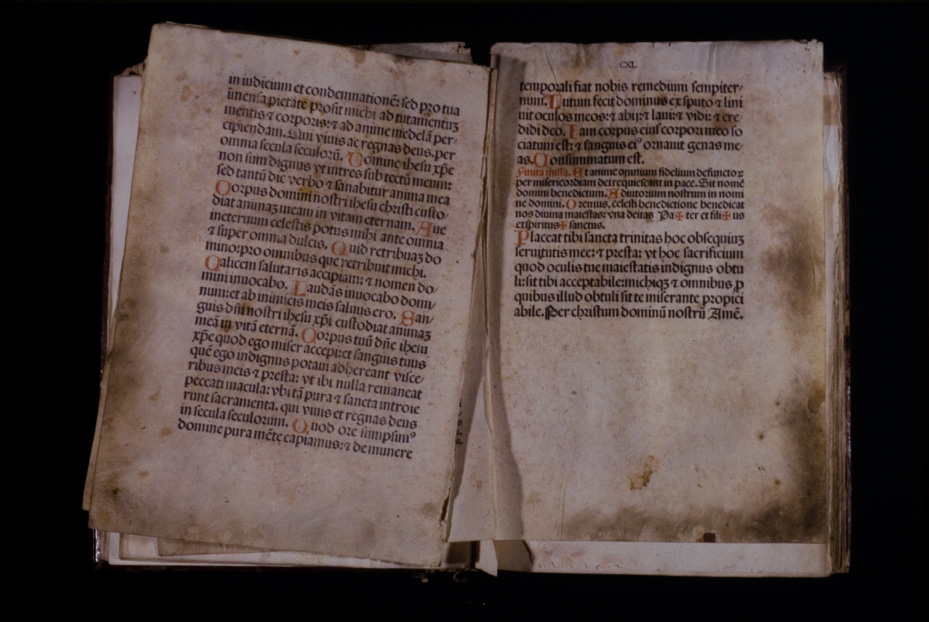 in iudicium et condemnationē: sed pro tua
īmensa pietate prosit michi ad tutamentuꝫ
mentis ⁊ corporis: ⁊ ad anime medelā per-
cipiendam. Qui viuis ac regnas deus. per
omnia secula seculorū. Domine ihesu xp̄e
non sum dignus vt intres sub tectū meum:
sed tantū dic verbo ⁊ sanabitur anima mea
Corpus domini nostri ihesu christi custo-
diat animaꝫ meam in vitam eternam. Aue
in eternum celestis potus mihi ante omnia
⁊ super omnia dulcis. Quid retribuaꝫ do
mino: pro omnibus que retribuit michi.
Calicem salutaris accipiam: ⁊ nomen do-
mini inuocabo. Laudās inuocabo domi-
num: et ab inimicis meis saluus ero. San-
guis dn̄i nostri ihesu xp̄i custodiat animaꝫ
meā in vitā eternā. Corpus tuū dn̄e ihesu
xp̄e quod ego miser accepi: et sanguis tuus
quē ego indignus potaui adhereant visce-
ribus meis ⁊ presta: vt ibi nulla remaneat
peccati macula: vbi tā pura ⁊ sancta introie
runt sacramenta. qui viuis et regnas deus
in secula seculorum. Quod ore sumpsimꝰ
domine pura mēte capiamus: ⁊ de munere
CXL
temporali fiat nobis remedium sempiter-
num. Lutum fecit dominus ex sputo ⁊ lini
uit oculos meos: ⁊ abij: ⁊ laui: ⁊ vidi: ⁊ cre
didi deo. Iam corpus eius corpori meo so
ciatum est: ⁊ sanguis eiꝰ ornauit genas me-
as. Consummatum est.
Finita missa. Et anime omnium fidelium defunctoꝝ
per misericordiam dei requiescant in pace. Sit nomē
domini benedictum. Adiutorium nostrum in nomi
ne domini. Oremus. celesti benedictione benedicat
nos diuina maiestas: vna deitas Pa✠ ter et fili✠ us
et spiritus✠ sanctus.
Placeat tibi sancta trinitas hoc obsequiuꝫ
seruitutis mee: ⁊ presta: vt hoc sacrificium
quod oculis tue maiestatis indignus obtu
li: sit tibi acceptabile: michiqꝫ ⁊ omnibus ꝓ
quibus illud obtuli sit te miserante propici
abile. Per christum dominū nostrū Amē.